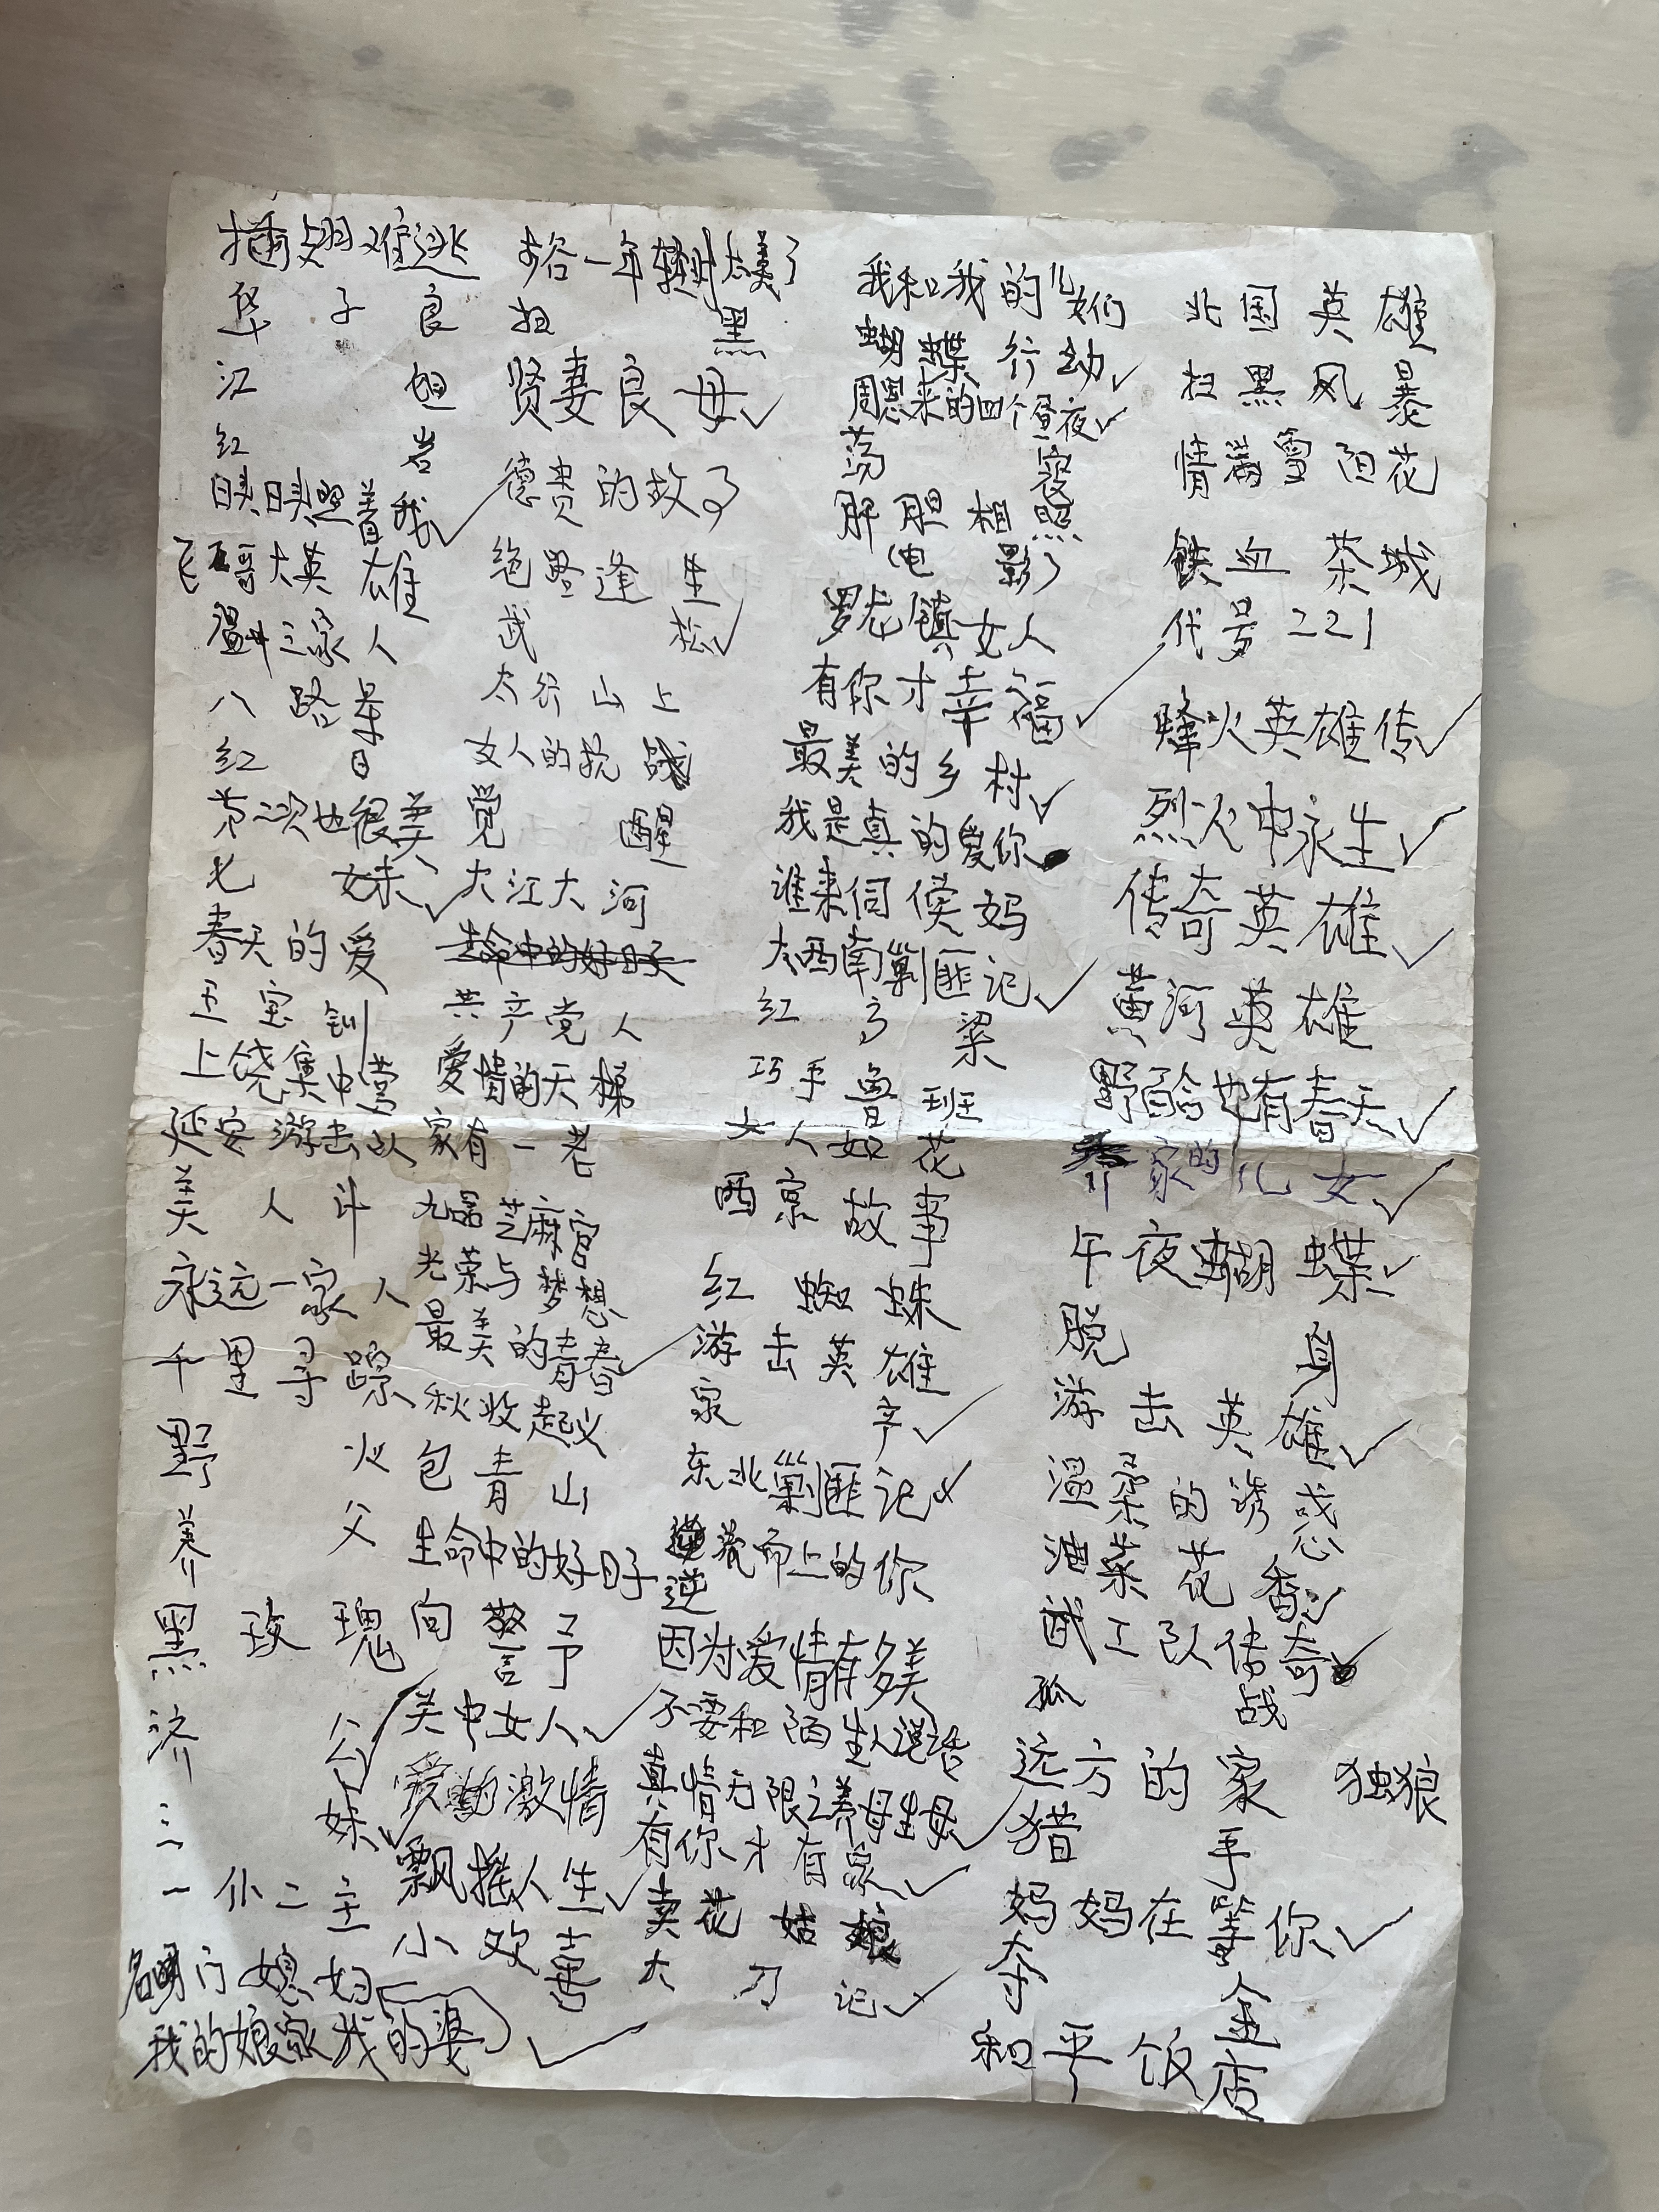 插翅难逃
华子良
江姐
红岩
映映照着我
飞哥大英雄
温州三家人
八路军
红日
第二次也很美
七妹
春天的爱
王宝钏
上饶集中营
延安游击队
美人计
永远一家人
千里寻踪
野火
养父
黑玫瑰
济公
三妹
一仆二主
名门媳妇
我的娘家我的婆
一年轻时太美了
扫黑
贤妻良母
德贵的故了
绝밀逢生
武松
太行山上
女人的抗战
觉醒
大江大河
共产党人
爱情的天梯
家有一老
九品芝麻官
光荣与梦想
最美的青春
秋收起义
包青山
生命中的好日子
向警予
关中女人
激情
飘摇人生
小欢喜
我和我的儿女们
蝴蝶行动
周恩来的四个昼夜
荡寇
肝胆相照
电影
罗龙镇女人
有你才幸福
最美的乡村
我是真的爱你
谁来伺侯妈
大西南剿匪记
红高粱
巧手鲁班
女人如花
西京故事
红蜘蛛
游击英雄
家产
东北剿匪记
逆流而上的你
因为爱情有多美
不要和陌生人说话
真情无限之养母生母
有你才有家
卖花姑娘
大刀记
北国英雄
扫黑风暴
情满雪阳花
铁血茶城
代号221
烽火英雄传
烈火中永生
传奇英雄
黄河英雄
野百合也有春天
乔家的儿女
午夜蝴蝶
脱身
游击英雄
温柔的诱惑
油菜花香
武工队传奇
孤战
远方的家
独狼
猎手
妈妈在等你
夺金
和平饭店